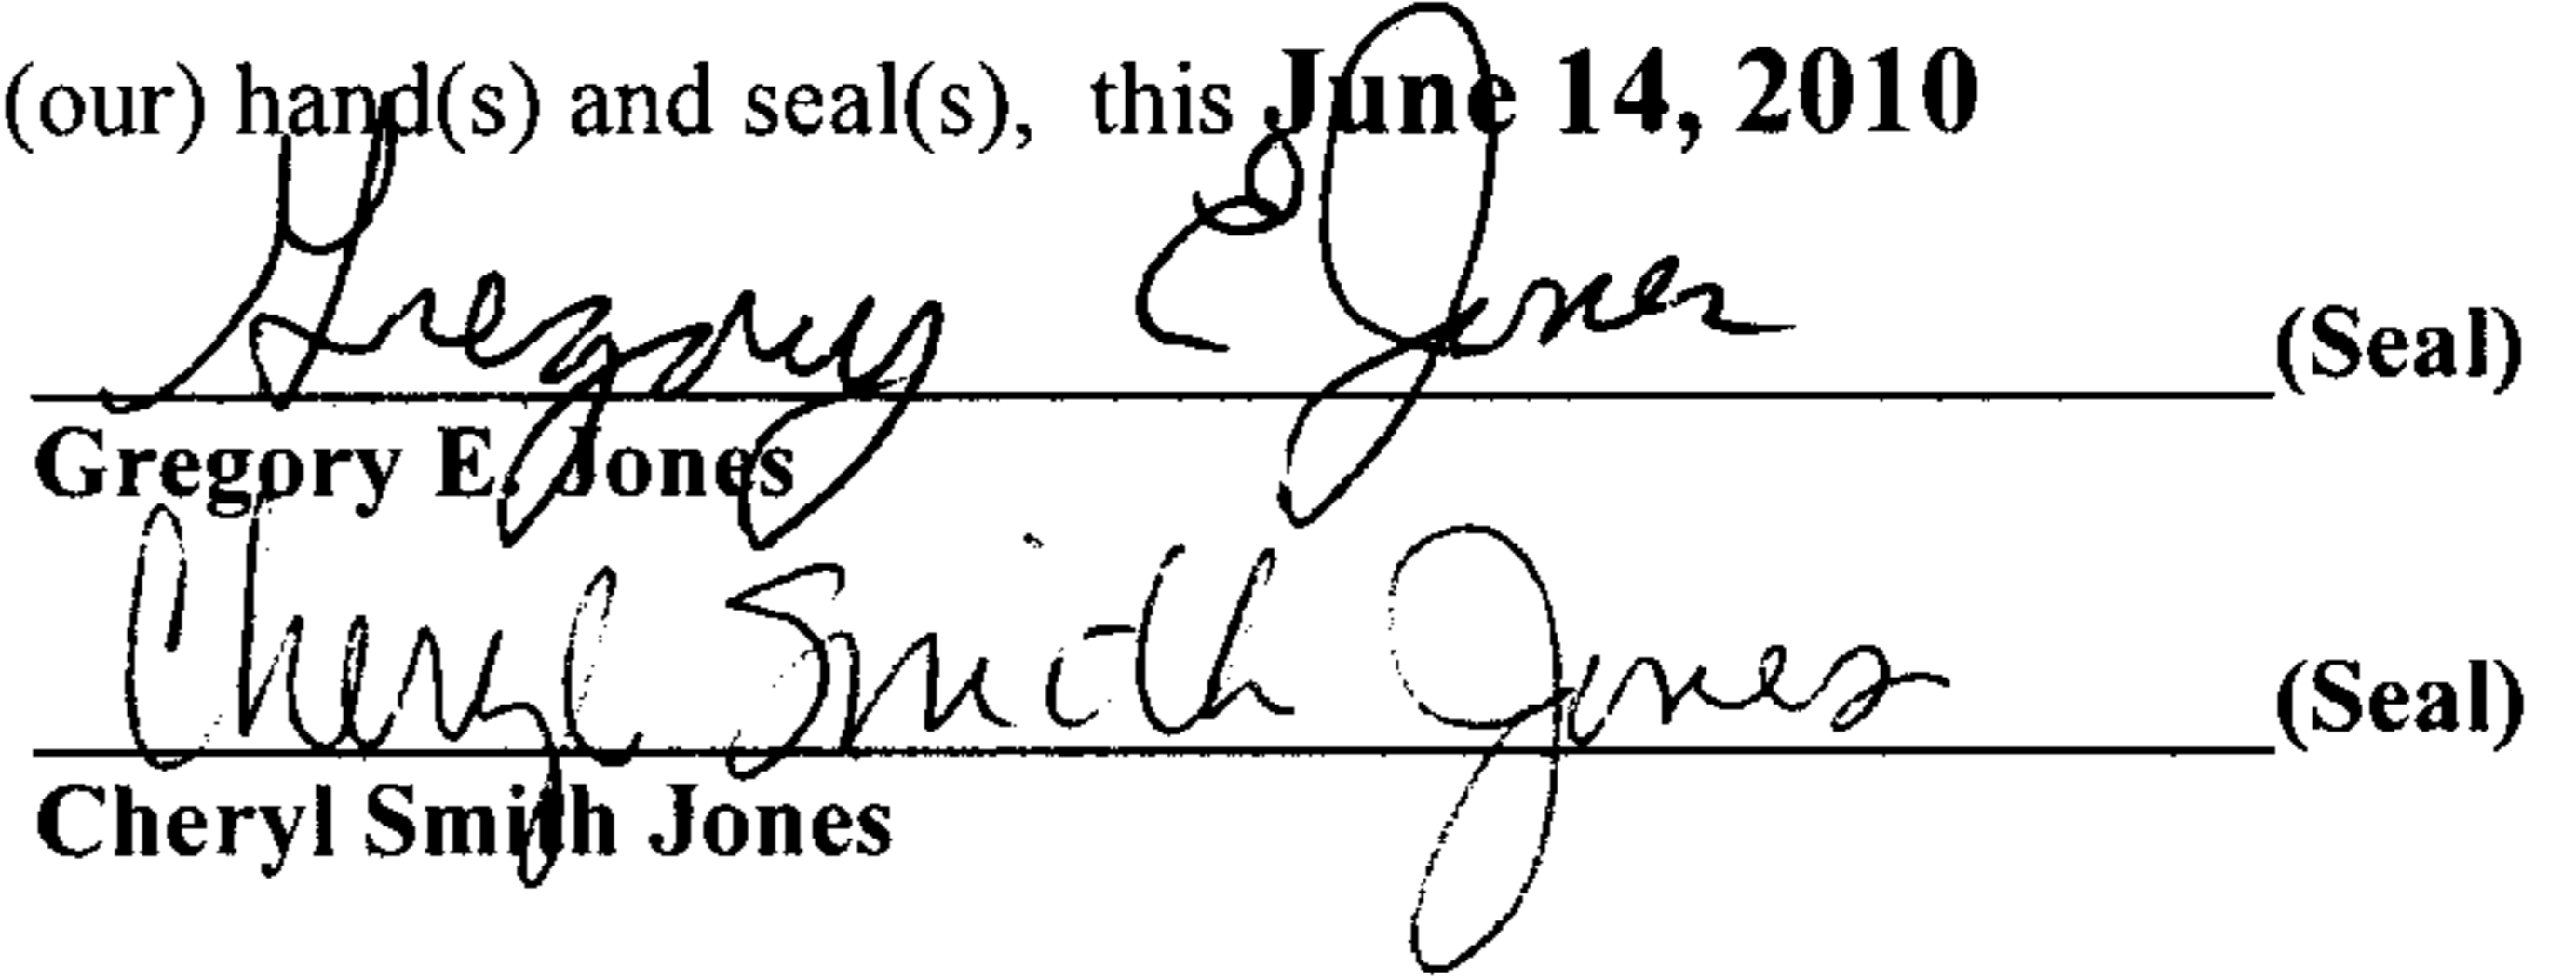 (our) hand(s) and seal(s), this June 14, 2010
Gregory E Jones (Seal)
Gregory E. Jones
Cheryl Smith Jones (Seal)
Cheryl Smith Jones